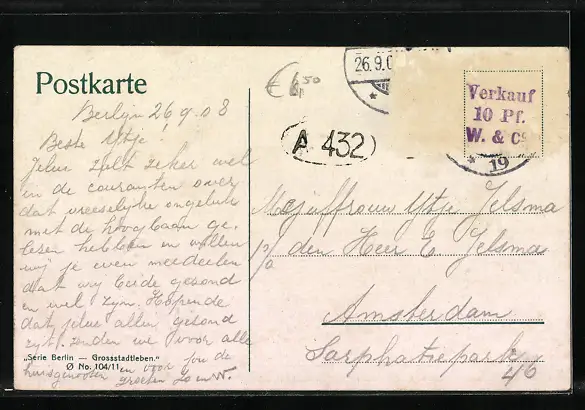 Postkarte
26.9.0
€ 6 50
A 432
Verkauf
10 Pf.
W. & Co
19
Berlijn 26 9 08
Beste Ytje!
Jelui zalt zeker wel
in de couranten over
dat vreeselijke ongeluk
met de hoogbaan ge-
lezen hebben en willen
wij je even meedeelen
dat wij beide gezond
en wel zijn. Hopende
dat jelui allen gezond
zijt. zenden we voor alle
huisgenooten en voor jou de
groeten Jo en W.
Mejuffrouw Ytje Jelsma
p/a den Heer E Jelsma
Amsterdam
Sarphatiepark
46
„Serie Berlin — Grossstadtleben."
Ø No. 104/11